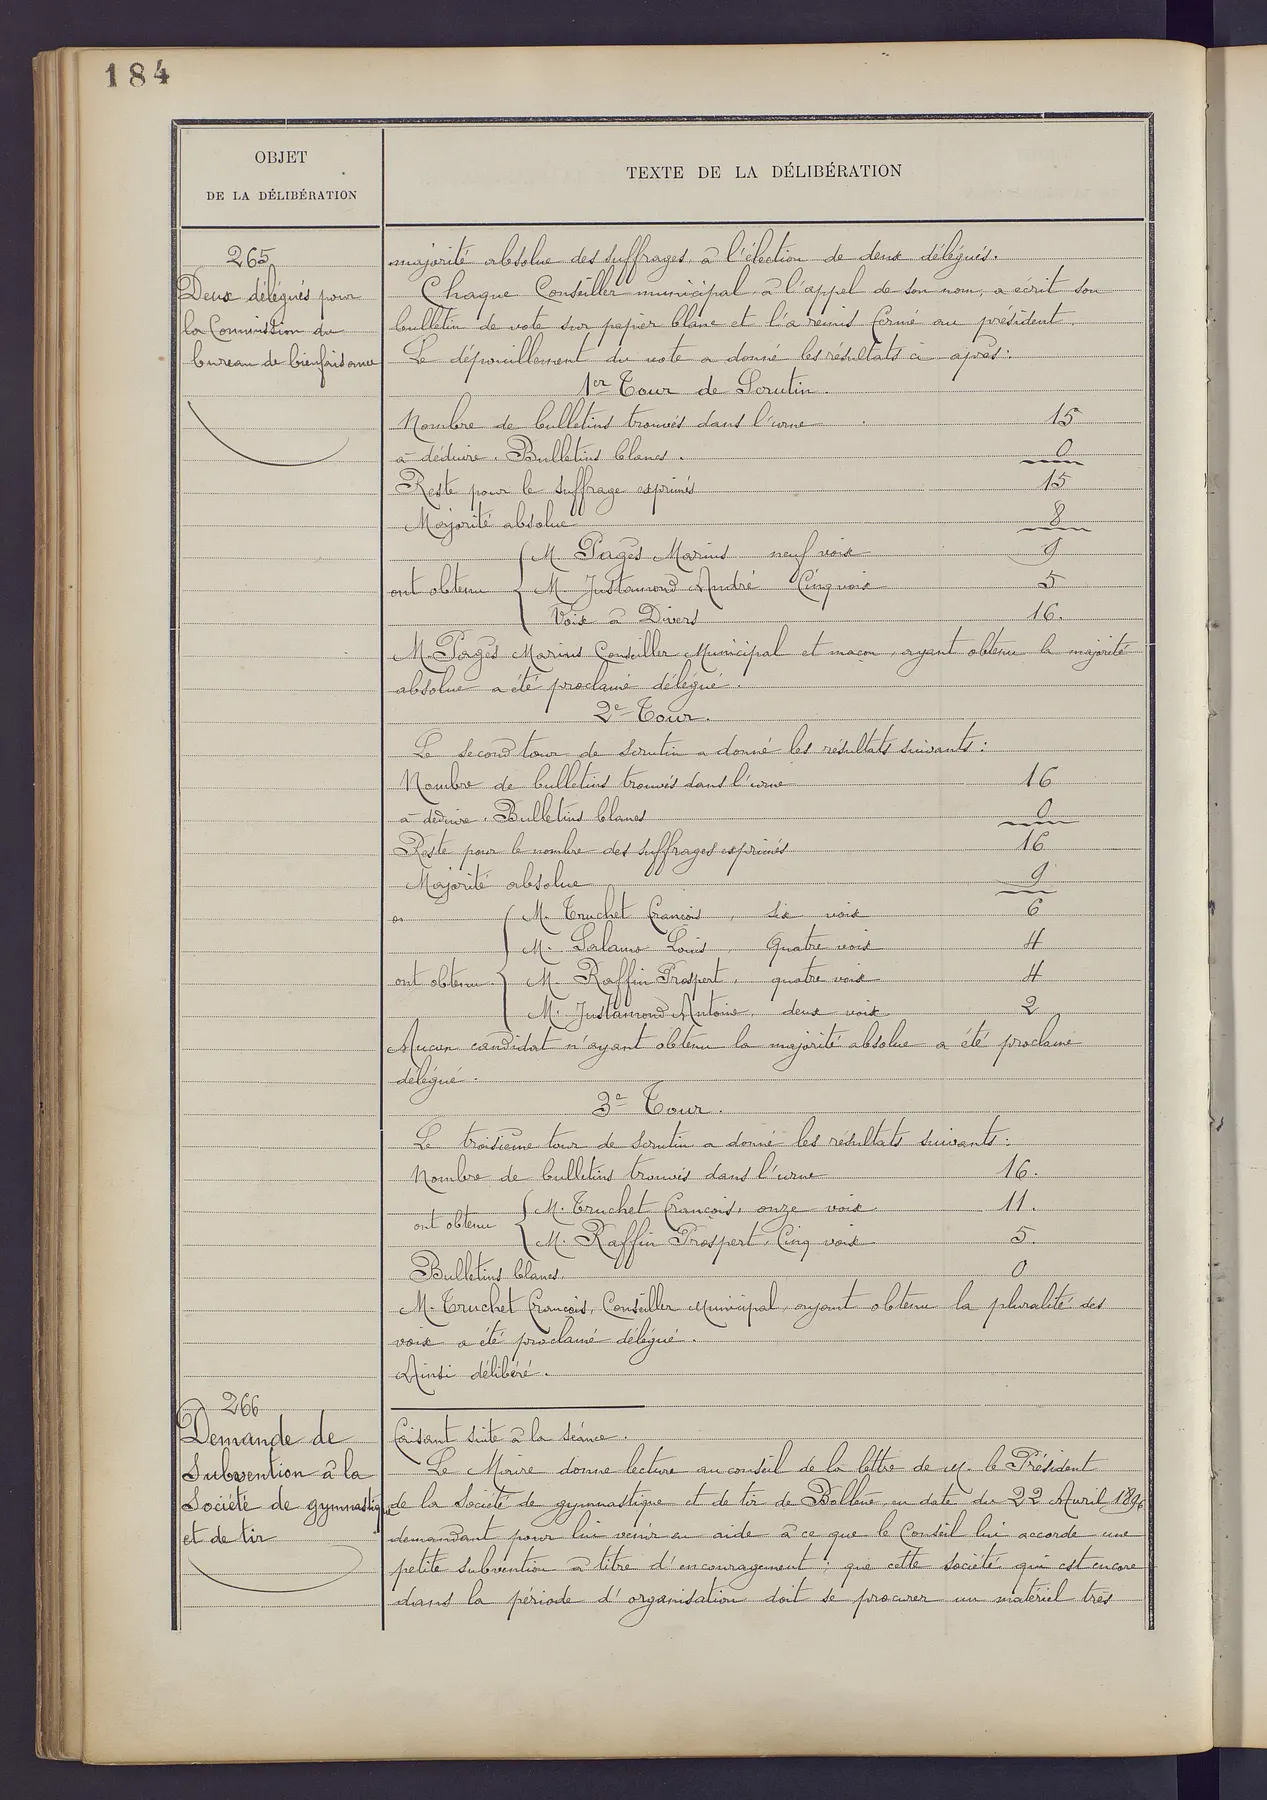 184
OBJET
DE LA DÉLIBÉRATION
TEXTE DE LA DÉLIBÉRATION
265
Deux délégués pour
la Commission du
bureau de bienfaisance
majorité absolue des suffrages, à l'élection de deux délégués.
Chaque Conseiller municipal, à l'appel de son nom, a écrit son
bulletin de vote sur papier blanc et l'a remis fermé au président.
Le dépouillement du vote a donné les résultats ci après:
1er Tour de Scrutin.
Nombre de bulletins trouvés dans l'urne 15
à déduire. Bulletins blancs. 0
Reste pour le suffrage exprimés 15
Majorité absolue 8
M. Pagès Marius neuf voix 9
ont obtenu M. Justamond André Cinq voix 5
Voix à Divers 16.
M. Pagès Marius Conseiller Municipal et maçon, ayant obtenu la majorité
absolue a été proclamé délégué.
2e Tour.
Le second tour de scrutin a donné les résultats suivants:
Nombre de bulletins trouvés dans l'urne 16
à déduire. Bulletins blancs 0
Reste pour le nombre des suffrages exprimés 16
Majorité absolue 9
on M. Truchet François, six voix 6
M. Salamo Louis, Quatre voix 4
ont obtenu M. Raffin Prospert, quatre voix 4
M. Justamond Antoine, deux voix 2
Aucun candidat n'ayant obtenu la majorité absolue a été proclamé
délégué.
3e Tour.
Le troisième tour de scrutin a donné les résultats suivants:
Nombre de bulletins trouvés dans l'urne 16.
M. Truchet François, onze voix 11.
ont obtenu
M. Raffin Prospert, Cinq voix 5.
Bulletins blancs, 0
M. Truchet François, Conseiller Municipal, ayant obtenu la pluralité des
voix a été proclamé délégué.
Ainsi délibéré.
266
Demande de
Subvention à la
Société de gymnastique
et de tir
Faisant suite à la séance.
Le Maire donne lecture au conseil de la lettre de M. le Président
de la Société de gymnastique et de tir de Bollène en date du 22 Avril 1896
demandant pour lui venir en aide à ce que le Conseil lui accorde une
petite subvention à titre d'encouragement; que cette société qui est encore
dans la période d'organisation doit se procurer un matériel très